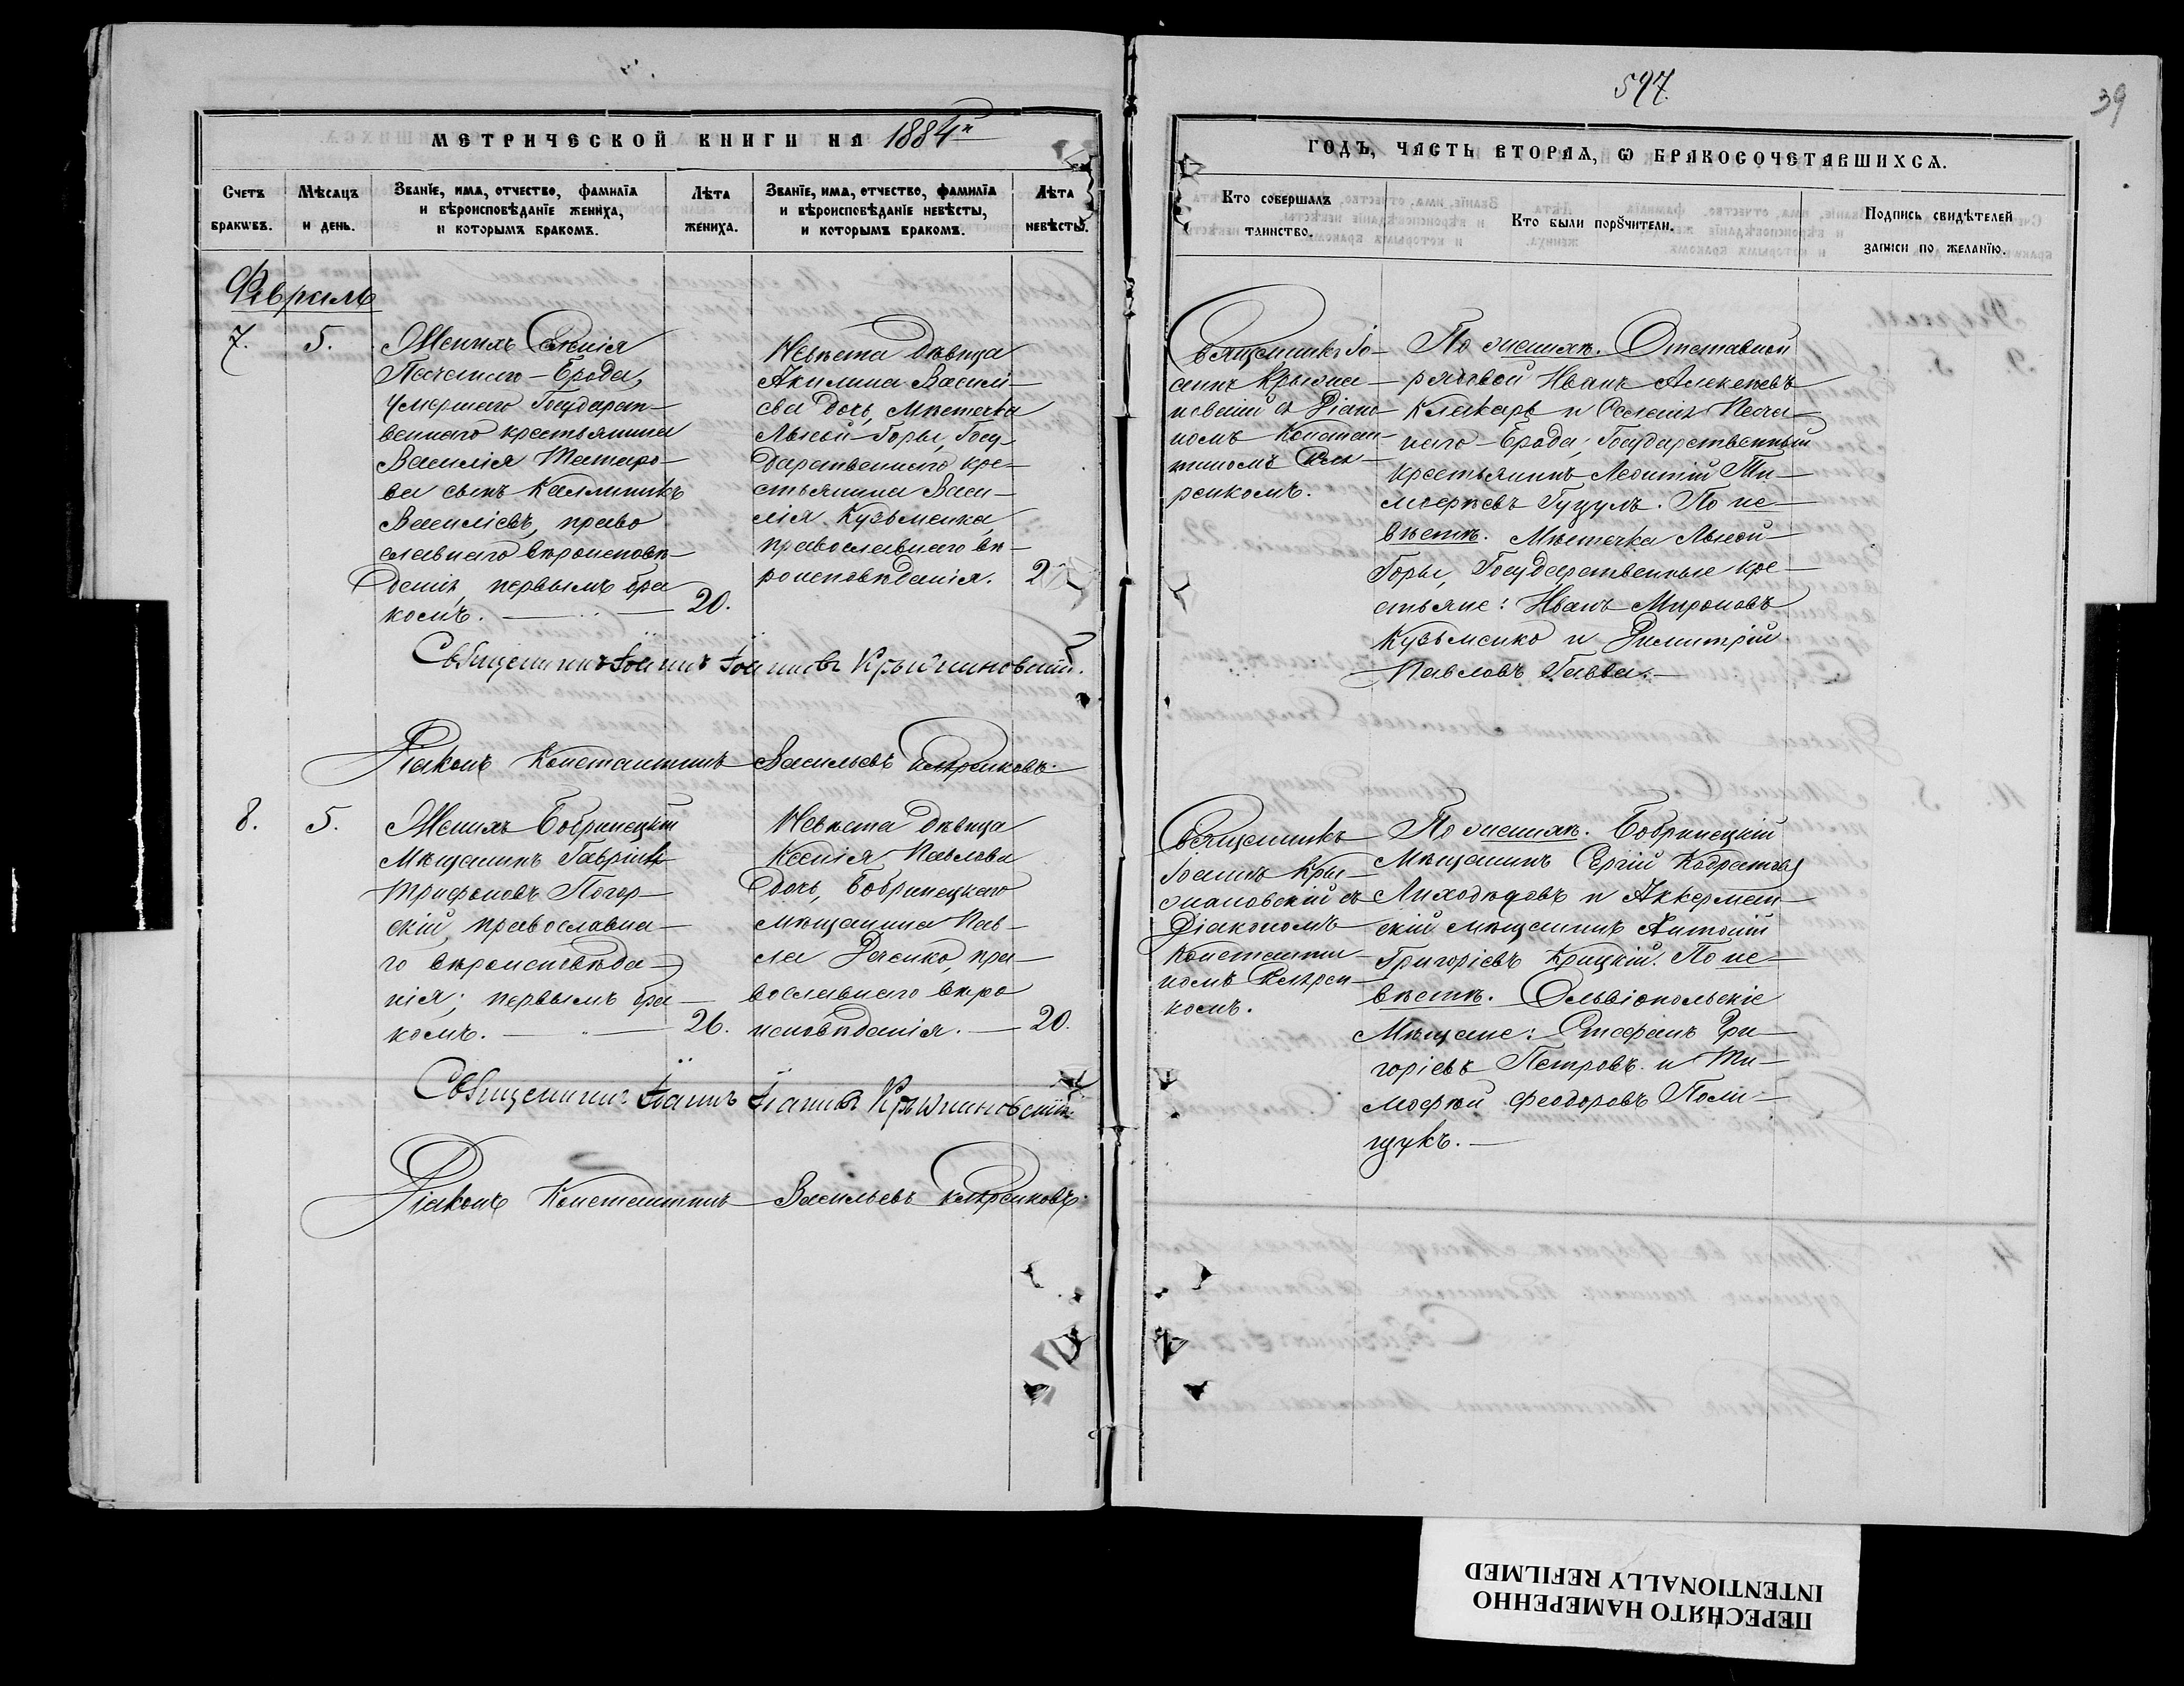 597.
39
МЕТРИЧЕСКОЙ КНИГИ НА 1884й
ГОДЪ, ЧАСТЬ ВТОРАѦ, Ѡ БРАКОСОЧЕТАВШИХСѦ.
Счетъ бракѡвъ.
Мѣсѧцъ и день.
Званїе, имѧ, отчество, фамилїѧ
и вѣроисповѣданїе жениха,
и которымъ бракомъ.
Лѣта жениха.
Званїе, имѧ, отчество, фамилїѧ
и вѣроисповѣданїе невѣсты,
и которымъ бракомъ.
Лѣта невѣсты.
Кто совершалъ таинство.
Кто были порꙋчители.
Подпись свидѣтелей
записи по желанїю.
Февраль
7.
5.
Женихъ Селенія
Песчанаго-Брода,
умершаго Государст-
веннаго крестьянина
Василія Татаро-
ва сынъ Каллиникъ
Василіевъ, право
славнаго вѣроисповѣ-
данія, первымъ бра
комъ.
20.
Невѣста дѣвица
Акилина Василі-
ева дочь, Мѣстечка
Лысой-Горы, Госу-
дарственнаго кре-
стьянина Васи-
лія Кузьменка,
православнаго вѣ-
роисповѣданія.
2
Священникъ Іо-
аннъ Крыжа-
новскій съ Діако-
номъ Констан-
тиномъ
ренкомъ.
По женихѣ. Отставной
рядовой Иванъ Алексѣевъ
Клекарь и Селенія Песча-
наго-Брода, Государственный
крестьянинъ Леонтій Ти-
моѳеевъ Гуцулъ. По не-
вѣстѣ. Мѣстечка Лысой-
Горы, Государственные кре-
стьяне: Иванъ Мироновъ
Кузьменко и Димитрій
Павловъ Савва.
Священникъ Іоаннъ Іоанновъ Крыжановскій.
Діаконъ Константинъ Васильевъ
8.
5.
Женихъ Бобринецкій
Мѣщанинъ Гавріилъ
Трифоновъ Погор-
скій, православна-
го вѣроисповѣда-
нія; первымъ бра-
комъ.
26.
Невѣста дѣвица
Ксенія Павлова
дочь, Бобринецкаго
мѣщанина Пав-
ла Даченко, пра-
вославнаго вѣро
исповѣданія.
20.
Священникъ
Іоаннъ Кры-
жановскій съ
Діакономъ
Константи-
номъ
комъ.
По женихѣ. Бобринецкій
Мѣщанинъ Сергій Кодратовъ
Лиходѣдовъ и Аккерман-
скій мѣщанинъ Антоній
Григоріевъ Крицкій. По не-
вѣстѣ. Ольвіопольскіе
Мѣщане: Стефанъ Гри-
горіевъ Петровъ и Ти-
моѳей Феодоровъ Поли-
щукъ.
Священникъ Іоаннъ Іоанновъ Крыжановскій
Діаконъ Константинъ Васильевъ
ПЕРЕСНЯТО НАМЕРЕННО
INTENTIONALLY REFILMED